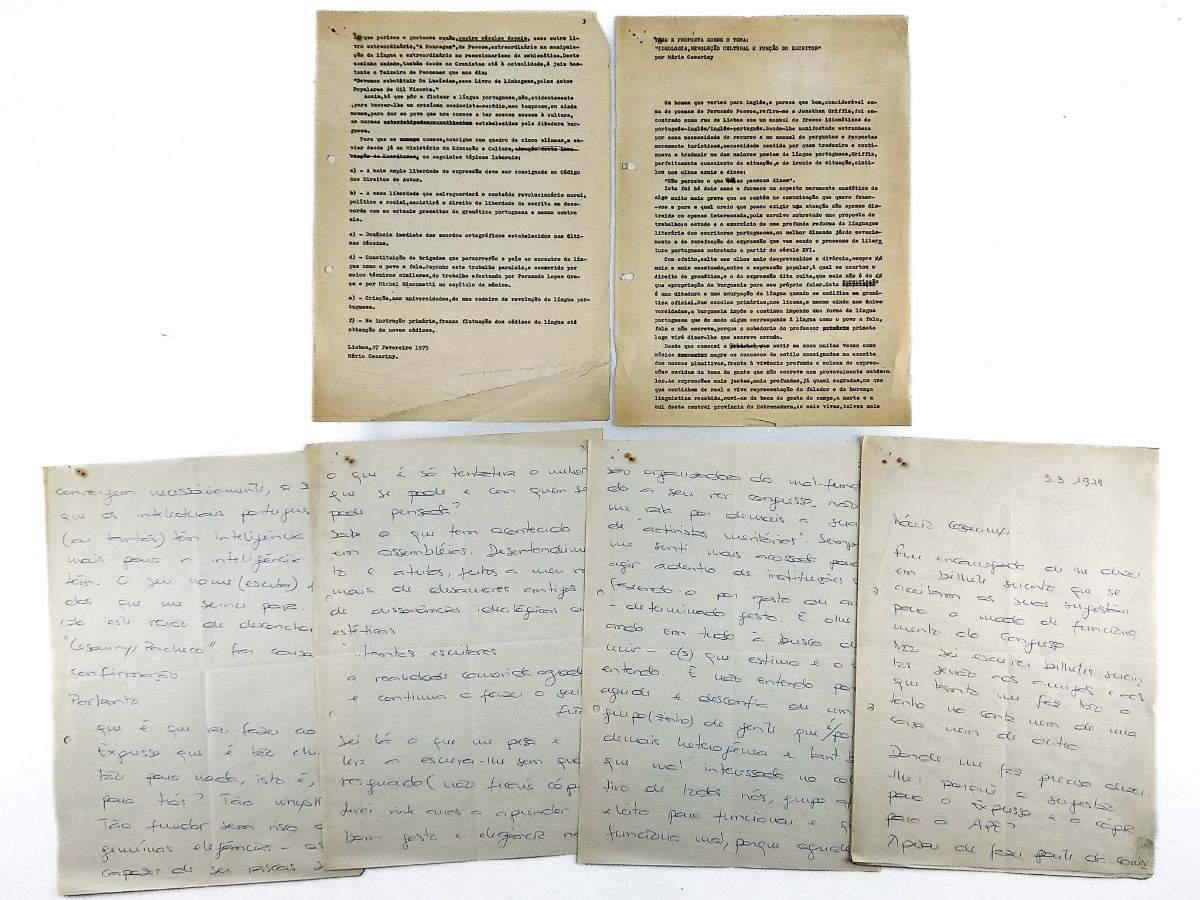 3
que parices e gostasse senão, quatro séculos depois, esse outro li-
vro extraordinário, "A Mensagem", de Pessoa, extraordinário na manipula-
ção da língua e extraordinário no reaccionarismo da emblemática. Deste
caminho andado, também desde os Cronistas até à actualidade, é juiz bas-
tante o Teixeira de Pascoaes que nos diz:
"Devemos substituir Os Lusíadas, esse Livro de Linhagens, pelos Autos
Populares de Gil Vicente."
Assim, há que pôr a flutuar a língua portuguesa, não, evidentemente
, para buscar-lhe um arcaísmo saudosista-serôdio, mas tampouco, ou ainda
menos, para dar ao povo que ora comece a ter acesso acesso à cultura,
as normas estabelecidas pela ditadura bur-
guesa.
Para que se comece, consigno num quadro de cinco alíneas, a en-
viar desde já ao Ministério da Educação e Cultura,
os seguintes tópicos laborais:
a) - A mais ampla liberdade de expressão deve ser consignada no Código
dos Direitos de Autor.
b) - A essa liberdade que salvaguardará o conteúdo revolucionário moral,
político e social, assistirá o direito da liberdade de escrita em desa-
cordo com os actuais preceitos da gramática portuguesa e mesmo contra
ela.
c) - Denúncia imediata dos acordos ortográficos estabelecidos nas últi-
mas décadas.
d) - Constituição de brigadas que percorrerão o país ao encontro da lín-
gua como o povo a fala. Suponho este trabalho paralelo, e socorrido por
meios técnicos similares, do trabalho efectuado por Fernando Lopes Gra-
ça e por Michel Giacometti no capítulo de música.
e) - Criação, nas universidades, de uma cadeira de revolução da língua por-
tuguesa.
f) - Na instrução primária, franca flutuação dos códices da língua até
obtenção de novos códices.
Lisboa, 27 Fevereiro 1975
Mário Cesariny.
TESE E PROPOSTA SOBRE O TEMA:
"IDEOLOGIA, REVOLUÇÃO CULTURAL E FUNÇÃO DO ESCRITOR"
por Mário Cesariny
Um homem que verteu para inglês, e parece que bem, considerável so-
ma de poemas de Fernando Pessoa, refiro-me a Jonathan Griffin, foi en-
contrado numa rua de Lisboa com um manual de frases idiomáticas de
português-inglês/inglês-português. Sendo-lhe manifestada estranheza
por essa necessidade de recurso a um manual de perguntas e respostas
meramente turísticas, necessidade sentida por quem traduzira e conti-
nuava a traduzir um dos maiores poetas da língua portuguesa, Griffin,
perfeitamente consciente da situação, e da ironia da situação, cinti-
lou nos olhos azuis e disse:
"Não percebo o que as pessoas dizem".
Isto foi há dois anos e fornece um aspecto meramente anedótico de
algo muito mais grave que se contém na comunicação que quero fazer-
-vos e para a qual creio que posso exigir uma atenção não apenas dis-
traída ou apenas interessada, pois envolve sobretudo uma proposta de
trabalho: o estudo e o exercício de uma profunda reforma da linguagem
literária dos escritores portugueses, ou melhor dizendo já: do esvazia-
mento e da rarefacção da expressão que vem sendo o processo da litera
tura portuguesa sobretudo a partir do século XVI.
Com efeito, salta aos olhos mais desprevenidos o divórcio, sempre
mais e mais acentuado, entre a expressão popular, à qual se cortou o
direito de gramática, e o da expressão dita culta, que mais não é do
que apropriação da burguesia para seu próprio falar. Esta apropriação
é uma ditadura e uma usurpação da língua quando se codifica em gramá-
tica oficial. Nas escolas primárias, nos liceus, e mesmo ainda nas Univer
versidades, a burguesia impôs e continua impondo uma forma de língua
portuguesa que de modo algum corresponde à língua como o povo a fala,
fala e não escreve, porque a sabedoria do professor primata
logo virá dizer-lhe que escreve errado.
Desde que comecei a ouvir me soou muitas vezes como
música negra os sucessos de estilo consignados na escrita
dos nossos plumitivos, frente à vivência profunda e solene de expres-
sões ouvidas da boca de gente que não escreve nem provavelmente saberia
ler. As expressões mais justas, mais profundas, já quasi sagradas, no que
que continham de real e viva representação do falador e da herança
linguística recebida, ouvi-as da boca de gente do campo, a norte e a
sul desta central província da Estremadura. As mais vivas, talvez mais
convergem necessàriamente, a
que os intelectuais portugues
(ai tantos) têm inteligência
mais para a inteligência
têm. O seu nome (escuta)
dos que me serviu para
este razão de desencher
"Cesariny/Pacheco" foi coisa
confirmação.
Portanto
que é que vai fazer ao
Expresso que é tão chi
tão para nada, isto é,
para tiós? Tão whysk
Tão fundor sem risco
genuínas elegâncias -
capazes de ser riscos
o que é só tentativa o melhor
que se pode e com quem se
pode pensada?
Sabe o que tem acontecido
em assembleias. Desentendimen
to e atritos, feitos a meu ver
mais de desamores antigos
de dissonâncias ideológicas ou
estéticas.
tantos escritores
a realidade comovida agradece
e continua a fazer o seu
frio
Sei lá o que me pesa e
leva a escrever-lhe sem qual
resguardo (não ficará cóp
levei vinte anos a aprender
bom gosto e elegância na
organizadora do mal-fund
do a seu ver congresso, não
me rala por demais a sua
de "activistas meritórios". Sempre
me senti mais acossada para
agir adentro de instituições
fazendo-o por gosto ou
- determinado gosto. E olhe
ando em tudo à busca de
unir - a(s) que estimo e o
entendo. E não entendo por
agudo e desconfia de um
grupo(zinho) de gente que é/por
demais heterogénea e
que mal interessada no colec
tivo de todos nós, grupo
eleito para funcionar e
funciona mal, porque aguda
3.3.1975
Mário Cesariny,
fui encarregada de lhe dizer
em bilhete sucinto que se
aceitam as suas sugestões
para o modo de funciona
mento do Congresso.
Não sei escrever bilhetes sucin
tos senão aos amigos e aos
que tanto me faz. Não o
tenho na conta nem de uma
coisa nem de outra.
Donde me faz preciso dizer-
-lhe: porquê a sugestão
para o Expresso e a cópia
para a APE?
Apesar de fazer parte da comis